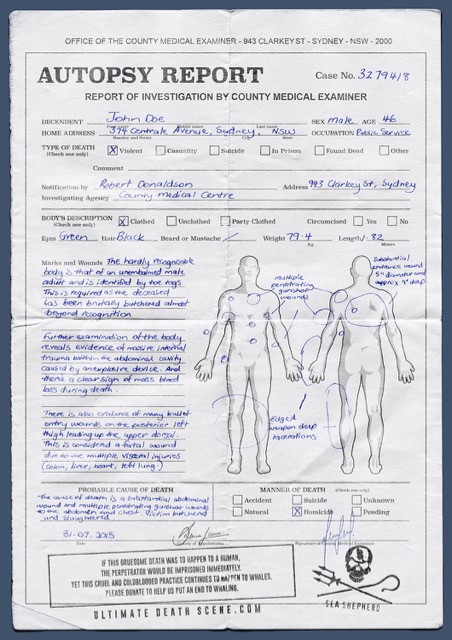 OFFICE OF THE COUNTY MEDICAL EXAMINER - 943 CLARKEY ST - SYDNEY - NSW - 2000
AUTOPSY REPORT Case No. 3279418
REPORT OF INVESTIGATION BY COUNTY MEDICAL EXAMINER
DECENDENT John Doe SEX Male AGE 46
HOME ADDRESS 374 Centrale Avenue, Sydney, NSW OCCUPATION Public Service
TYPE OF DEATH X Violent Casuality Suicide In Prison Found Dead Other
(Check one only)
Comment
Notification by Robert Donaldson Address 993 Clarkey St, Sydney
Investigating Agency County Medical Centre
BODY'S DESCRIPTION X Clothed Unclothed Party Clothed Circumcised Yes No
(Check one only)
Eyes Green Hair Black Beard or Mustache / Weight 79.4 Length 1.82
Kg Meters
Marks and Wounds The hardly recognisable
body is that of an unembalmed male
adult and is identified by toe tags
This is required as the deceased
has been brutally butchered almost
beyond recognition
Further examination of the body
reveals evidence of massive internal
trauma within the abdominal cavity
caused by an explosive device. And
there's a clear sign of mass blood
loss during death.
There is also evidence of many bullet
entry wounds on the posterior left
thigh leading up the upper dorsal.
This is considered a fatal wound
due to the multiple visceral injuries
(colon, liver, heart, left lung)
multiple
penetrating
gunshot
wounds
Substantial
entrance wound
5" diameter and
approx 9" deep
Edged
weapon deep
lacerations
PROBABLE CAUSE OF DEATH
The cause of death is a substantial abdominal
wound and multiple penetrating gunshot wounds
to the abdomen and chest. Victim butchered
and slaughtered
MANNER OF DEATH (Check one only)
Accident Suicide Unknown
Natural X Homicide Pending
31.07.2015
Date
IF THIS GRUESOME DEATH WAS TO HAPPEN TO A HUMAN,
THE PERPETRATOR WOULD BE IMPRISONED IMMEDIATELY.
YET THIS CRUEL AND COLDBLOODED PRACTICE CONTINUES TO HAPPEN TO WHALES.
PLEASE DONATE TO HELP US PUT AN END TO WHALING.
ULTIMATE DEATH SCENE.COM
SEA SHEPHERD